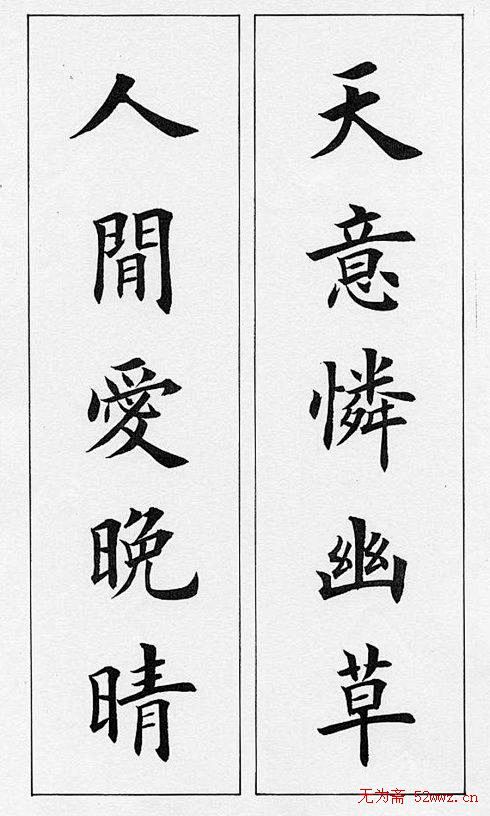 天意憐幽草
人閒愛晚晴
无为斋 52wwz.cn